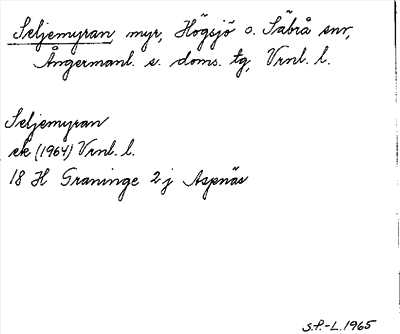 Seljemyran, myr, Högsjö o. Säbrå snr,
Ångermanl. s. doms. tg, Vrnl. l.
Seljemyran
ek (1964) Vrnl. l.
18 H Graninge 2 j Aspnäs
S.P.-L. 1965